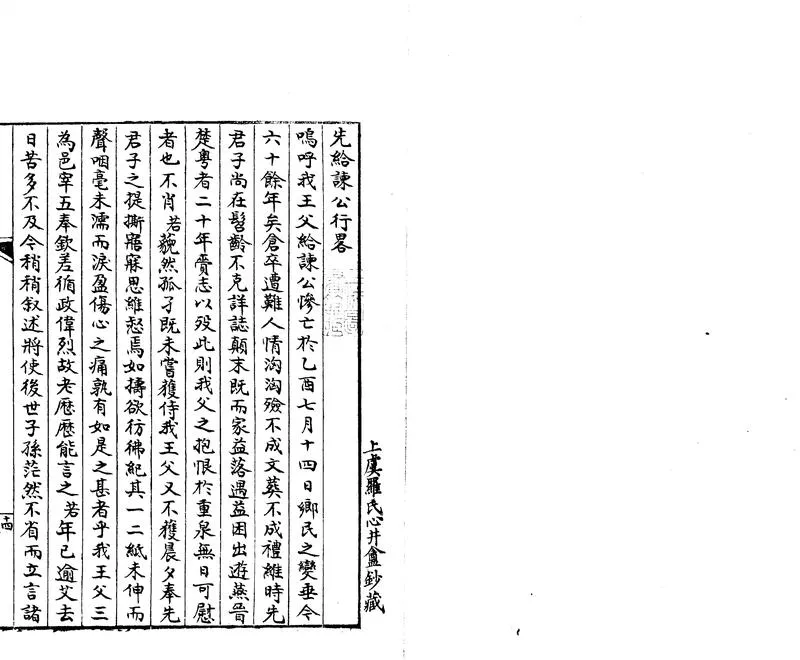 先給諫公行畧
嗚呼我王父給諫公慘亡於乙酉七月十四日鄉民之變垂今
六十餘年矣倉卒遭難人情洶洶殮不成文葬不成禮維時先
君子尚在髫齡不克詳誌顛末既而家益落遇益困出遊燕晉
楚粵者二十年賫志以歿此則我父之抱恨於重泉無日可慰
者也不肖若藐然孤孑既未嘗獲侍我王父又不獲晨夕奉先
君子之提撕寤寐思維惄焉如擣欲彷彿紀其一二紙未伸而
聲咽毫未濡而淚盈傷心之痛孰有如是之甚者乎我王父三
為邑宰五奉欽差循政偉烈故老歷歷能言之若年已逾艾去
日苦多不及令稍稍叙述將使後世子孫茫然不省而立言諸
上虞羅氏心井盦鈔藏
十四